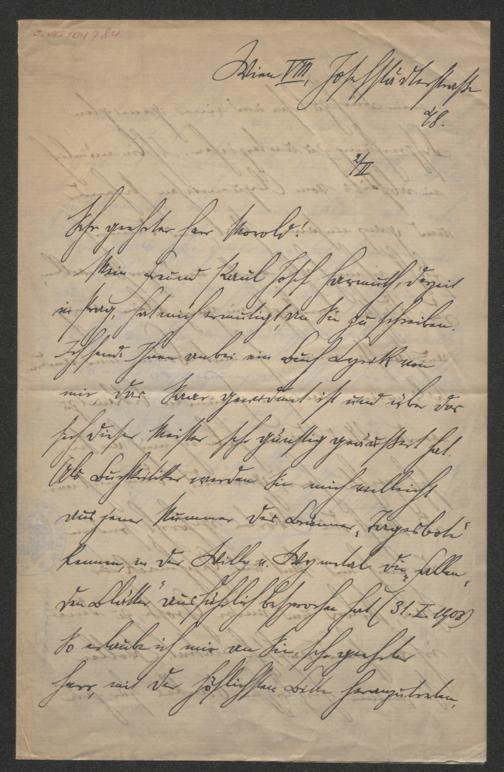 J. N. 104784
Wien VIII, Josefstädterstraße
48.
2/II
Sehr geehrter Herr Morold!
Mein Freund Paul Josef Harmuth, derzeit
in Prag, hat mich ermutigt, an Sie zu schreiben.
Ich sende Ihnen anbei ein Buch Lyrik von
mir, das Saar gewidmet ist und über das
sich dieser Meister sehr günstig geäußert hat.
Als Buchkritiker werden Sie mich vielleicht
aus jener Nummer des Brünner „Tagesbote"
kennen, in der Willy v. Wymetal die „fallen-
den Blätter" ausführlich besprochen hat. (31. I. 1903)
So erlaube ich mir an Sie, sehr geehrter
Herr, mit der höflichsten Bitte heranzutreten,